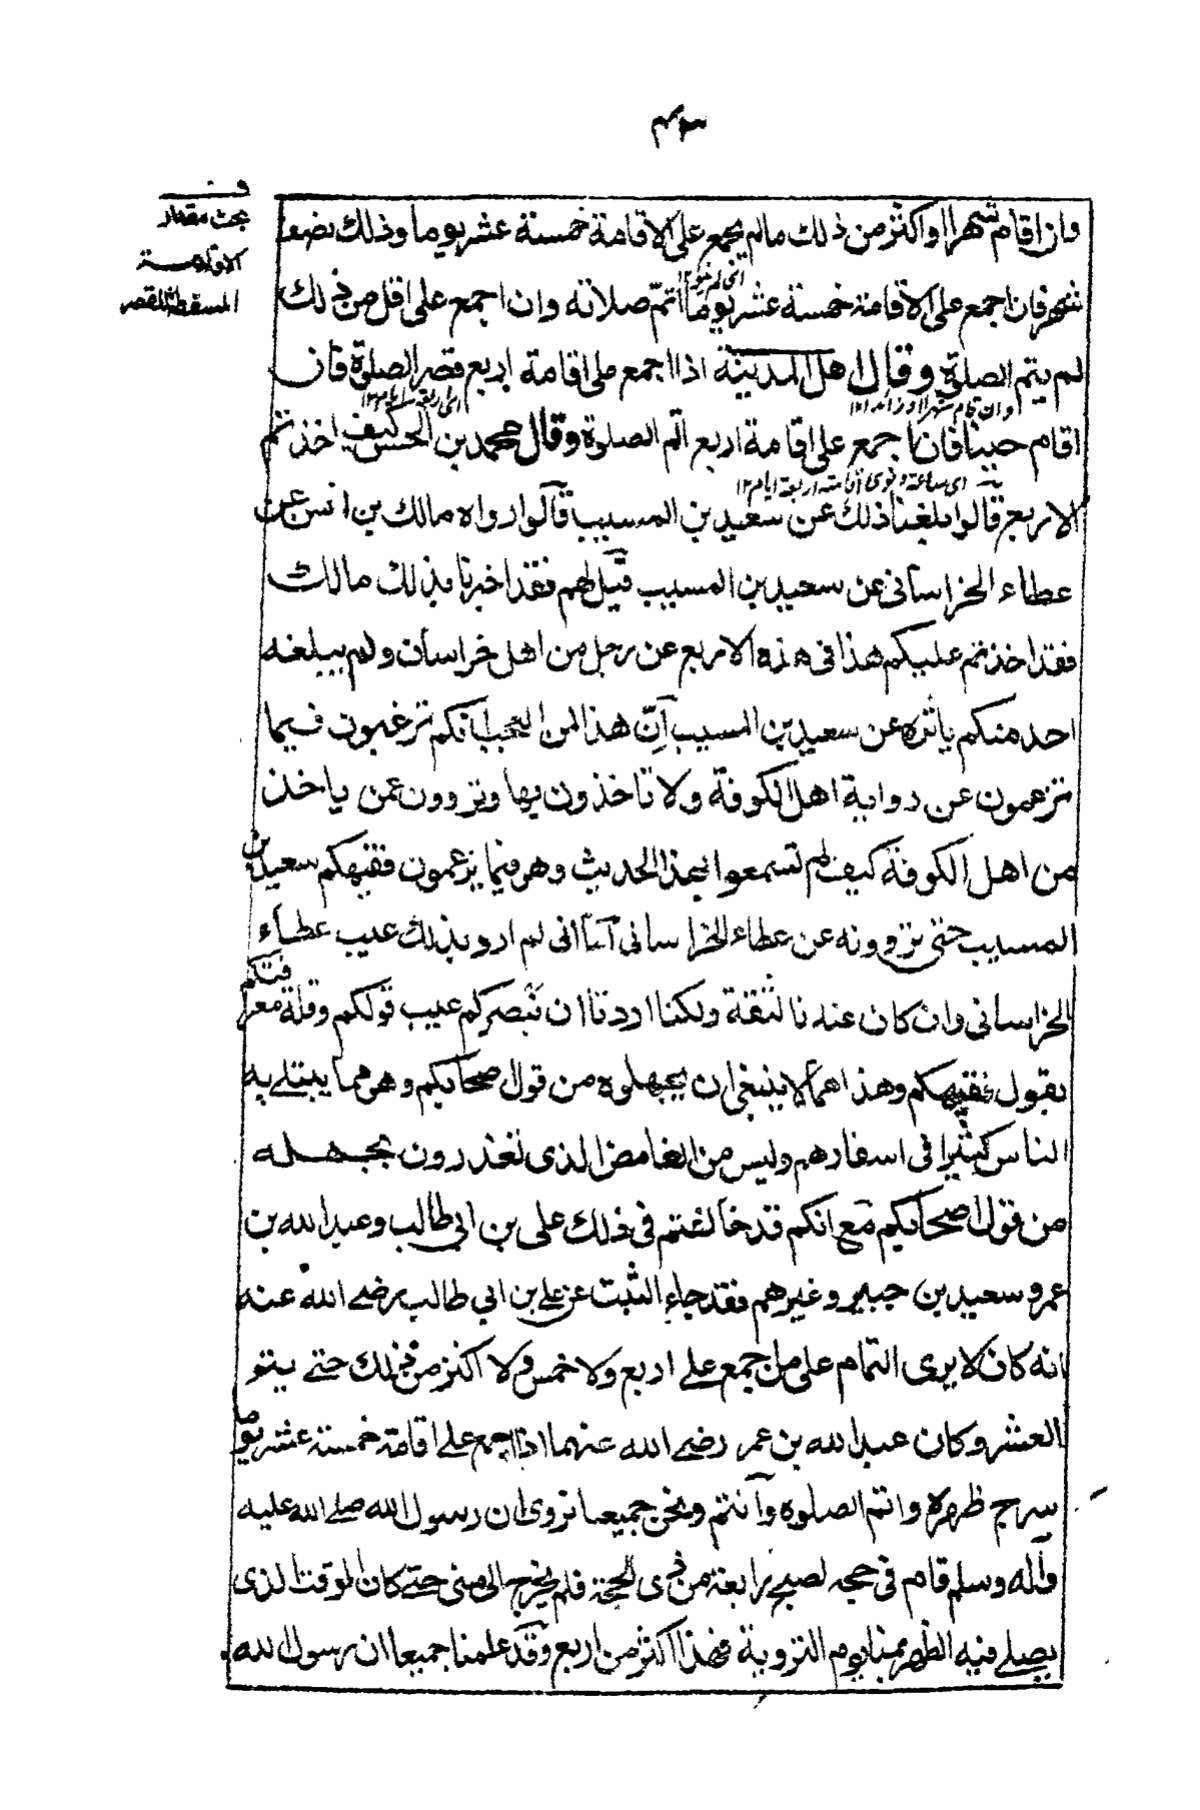 ٤٣
بحث مقدار
الاقامة
المسقطة للقصر
وان اقام شهرا او اكثر من ذلك مالم يجمع على الاقامة خمسة عشر يوما وذلك نصف
شهر فان اجمع على الاقامة خمسة عشر يوما اتم صلاته وان اجمع على اقل من ذلك
لم يتم الصلوة وقال اهل المدينة اذا اجمع على اقامة اربع قصر الصلوة فان
وان قام شهرا او زائدا١٢
اقام حينا فان اجمع على اقامة اربع اتم الصلوة وقال محمد بن الحسن كيف اخذتم
اي ساعة ونوى اقامة اربعة ايام١٢
الاربع قالوا بلغنا ذلك عن سعيد بن المسيب قالوا رواه مالك بن انس عن
عطاء الخراسانى عن سعيد بن المسيب قيل لهم فقد اخبرنا بذلك مالك
فقد اخذتم عليكم هذا فى هذه الاربع عن رجل من اهل خراسان ولم يبلغه
احد منكم ياثره عن سعيد بن المسيب ان هذا لمن العجب انكم ترغبون فيما
تزعمون عن رواية اهل الكوفة ولا تاخذون بها وتروون عمن ياخذ
من اهل الكوفة كيف لم تسمعوا بهذا الحديث وهو فيما يزعمون فقيهكم سعيد بن
المسيب حتى تروونه عن عطاء الخراسانى اما انى لم ارو بذلك عيب عطاء
الخراسانى وان كان عندنا لثقة ولكنا اردنا ان نبصركم عيب قولكم وقلة معرفتكم
بقول فقيهكم وهذا مما لا ينبغى ان يجهلوه من قول صحابكم وهو مما يبتلى به
الناس كثيرا فى اسفارهم وليس من الغامض الذى تعذرون بجهله
من قول اصحابكم مع انكم قد خالفتم فى ذلك على بن ابى طالب وعبد الله بن
عمر و سعيد بن جبير وغيرهم فقد جاء الثبت عن علي بن ابي طالب رضى الله عنه
انه كان لا يرى التمام على من اجمع على اربع ولا خمس ولا اكثر من ذلك حتى ينو
العشر وكان عبد الله بن عمر رضى الله عنهما اذا اجمع على اقامة خمسة عشر يوما
سرج ظهره واتم الصلوة وانتم ونحن جميعا نروى ان رسول الله صلى الله عليه
واله وسلم قام فى حجه لصبح رابعة من ذى الحجة فلم يخرج الى منى حتى كان الوقت الذى
يصلى فيه الظهر بمنا يوم التروية فهذا اكثر من اربع وقد علمنا جميعا ان رسول الله